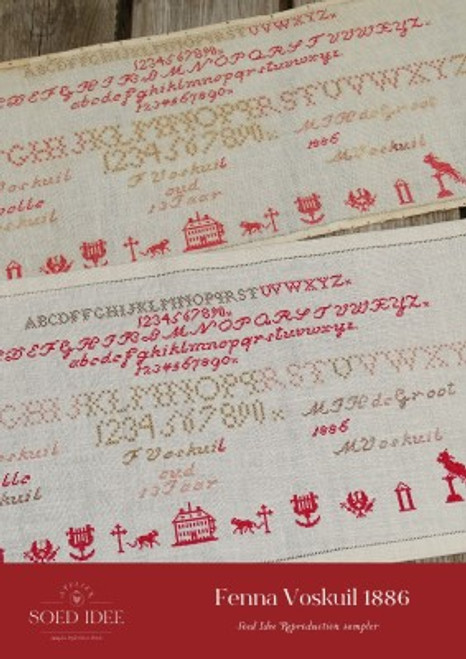 ABCDEFGHIJKLMNOPQRSTUVWXYZ
1234567890
DEFGHIJKLMNOPQRSTUVWXYZ
abcdefghiklmnopqrstuvwxyz
1234567890
GHIJKLMNOPQRSTUVWXYZ
1234567890
MJH deGroot
Voskuil
F Voskuil
1886
oud
MVoskuil
13 Jaar
ABCDEFGHIJKLMNOPQRSTUVWXYZ
1234567890
DEFGHIJKLMNOPQRSTUVWXYZ
abcdefghiklmnopqrstuvwxyz
1234567890
GHIJKLMNOPQRSTUVWXY
1234567890
MJH deGroot
F Voskuil
1886
oud
MVoskuil
13 Jaar
ATELIER
SOED IDEE
Fenna Voskuil 1886
Soed Idee Reproduction sampler